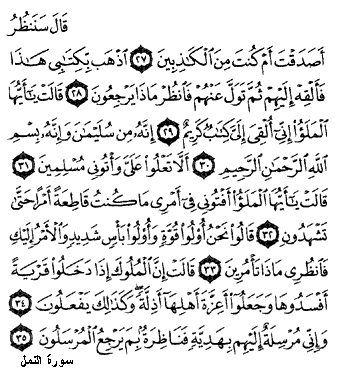 قَالَ سَنَنظُرُ
أَصَدَقْتَ أَمْ كُنتَ مِنَ ٱلْكَٰذِبِينَ ٢٧ ٱذْهَب بِّكِتَٰبِى هَٰذَا
فَأَلْقِهْ إِلَيْهِمْ ثُمَّ تَوَلَّ عَنْهُمْ فَٱنظُرْ مَاذَا يَرْجِعُونَ ٢٨ قَالَتْ يَٰٓأَيُّهَا
ٱلْمَلَؤُا۟ إِنِّىٓ أُلْقِىَ إِلَىَّ كِتَٰبٌ كَرِيمٌ ٢٩ إِنَّهُۥ مِن سُلَيْمَٰنَ وَإِنَّهُۥ بِسْمِ
ٱللَّهِ ٱلرَّحْمَٰنِ ٱلرَّحِيمِ ٣٠ أَلَّا تَعْلُوا۟ عَلَىَّ وَأْتُونِى مُسْلِمِينَ ٣١
قَالَتْ يَٰٓأَيُّهَا ٱلْمَلَؤُا۟ أَفْتُونِى فِىٓ أَمْرِى مَا كُنتُ قَاطِعَةً أَمْرًا حَتَّىٰ
تَشْهَدُونِ ٣٢ قَالُوا۟ نَحْنُ أُو۟لُوا۟ قُوَّةٍ وَأُو۟لُوا۟ بَأْسٍ شَدِيدٍ وَٱلْأَمْرُ إِلَيْكِ
فَٱنظُرِى مَاذَا تَأْمُرِينَ ٣٣ قَالَتْ إِنَّ ٱلْمُلُوكَ إِذَا دَخَلُوا۟ قَرْيَةً
أَفْسَدُوهَا وَجَعَلُوٓا۟ أَعِزَّةَ أَهْلِهَآ أَذِلَّةً ۖ وَكَذَٰلِكَ يَفْعَلُونَ ٣٤
وَإِنِّى مُرْسِلَةٌ إِلَيْهِم بِهَدِيَّةٍ فَنَاظِرَةٌۢ بِمَ يَرْجِعُ ٱلْمُرْسَلُونَ ٣٥
سورة النمل